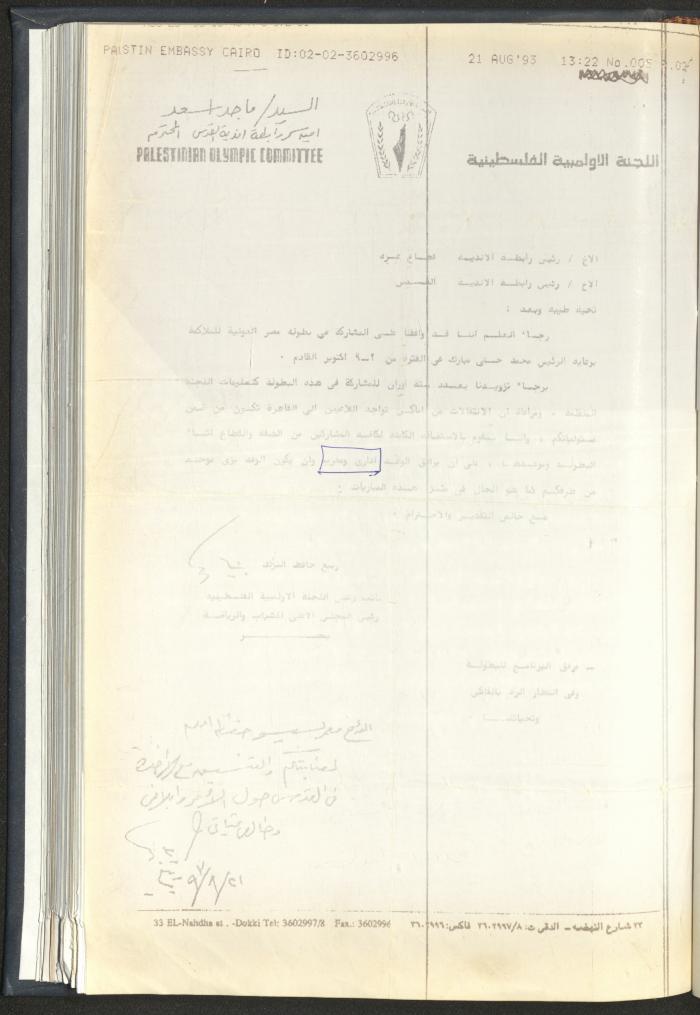 PALSTIN EMBASSY CAIRO ID:02-02-3602996 21 AUG'93 13:22 No.005 P.02
السيد/ ماجد اسعد
امين سر رابطة اندية القدس المحترم
PALESTINIAN OLYMPIC COMMITTEE
اللجنة الاولمبية الفلسطينية
الاخ / رئيس رابطة الانديه قطاع غزه
الاخ / رئيس رابطة الانديه القدس
تحيه طيبه وبعد :
رجاء العلم اننا قد وافقنا على المشاركة في بطوله مصر الدولية للملاكمة
برعايه الرئيس محمد حسنى مبارك فى الفتره من ٢-٩ اكتوبر القادم .
برجاء تزويدنا بعدد سته اوزان للمشاركة فى هذه البطوله كتعليمات اللجنة
المنظمة ، ومراعاة ان الانتقالات من اماكن تواجد اللاعبين الى القاهرة تكون من ضمن
مسئولياتكم ، واننا سنقوم بالاستضافه الكامله لكافة المشاركين من الضفه والقطاع اثناء
البطولة ، على ان يرافق الوفد ادارى ومدرب وان يكون الوفد بزى موحد
من طرفكم كما هو الحال فى مثل هذه المباريات .
مع خالص التقدير والاحترام .
ربيع حافظ الترك
نائب رئيس اللجنة الاولمبية الفلسطينيه
رئيس المجلس الاعلى للشباب والرياضه
بمصر
- مرفق البرنامج للبطولة
وفى انتظار الرد بالفاكس
وتحياتنا
الأخ معمر بسيسو حفظه الله
فى القدس حول الأمر وابلاغي
وخالص تحياتي
٩٣/٨/٢١
33 EL-Nahdha st . -Dokki Tel: 3602997/8 Fax.: 3602996 ٣٣ شارع النهضه - الدقى ت: ٣٦٠٢٩٩٧/٨ فاكس: ٣٦٠٢٩٩٦